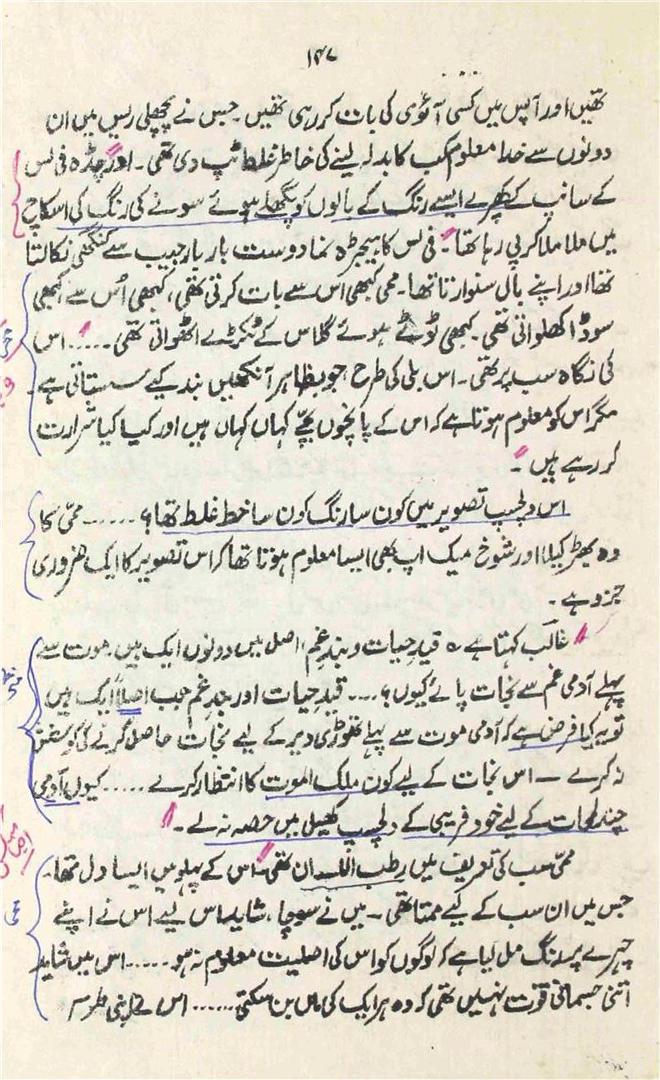 ۱۴۷
تھیں اور آپس میں کسی آنٹوی کی بات کر رہی تھیں۔ جس نے پچھلی ریس میں ان
دونوں سے خدا معلوم کب کا بدلہ لینے کی خاطر غلط ٹپ دی تھی۔ اور چڈہ فی لس
کے سانپ کے کھپرے ایسے رنگ کے بالوں کو پگھلے ہوئے سونے کی رنگ کی اسکاچ
میں ملا ملا کر پی رہا تھا۔ فی لس کا ہیجڑہ نما دوست بار بار جیب سے کنگھی نکالتا
تھا اور اپنے بال سنوارتا تھا۔ ممی کبھی اس سے بات کرتی تھی، کبھی اُس سے، کبھی
سوڈا کھلواتی تھی۔ کبھی ٹوٹے ہوئے گلاس کے ٹکڑے اٹھواتی تھی۔..... اس
کی نگاہ سب پر تھی۔ اس بلی کی طرح، جو بظاہر آنکھیں بند کیے سستاتی ہے۔
مگر اس کو معلوم ہوتا ہے کہ اس کے پانچوں بچے کہاں کہاں ہیں اور کیا کیا شرارت
کر رہے ہیں۔
اس دلچسپ تصویر میں کون سا رنگ کون سا خط غلط تھا؟...... ممی کا
وہ بھڑکیلا اور شوخ میک اپ بھی ایسا معلوم ہوتا تھا کہ اس تصویر کا ایک ضروری
جزو ہے۔
غالب کہتا ہے ؎ قیدِ حیات و بندِ غم، اصل میں دونوں ایک ہیں۔ موت سے
پہلے آدمی غم سے نجات پائے کیوں؟.... قیدِ حیات اور بندِ غم جب اصلاً ایک ہیں
تو یہ کیا فرض ہے کہ آدمی موت سے پہلے تھوڑی دیر کے لیے نجات حاصل کرنے کی کوشش
نہ کرے — اس نجات کے لیے کون ملک الموت کا انتظار کرے ..... کیوں آدمی
چند لمحات کے لیے خود فریبی کے دلچسپ کھیل میں حصہ نہ لے۔
ممی سب کی تعریف میں رطب اللسان تھی۔ اس کے پہلو میں ایسا دل تھا۔
جس میں ان سب کے لیے ممتا تھی۔ میں نے سوچا، شاید اس لیے اس نے اپنے
چہرے پر رنگ مل لیا ہے کہ لوگوں کو اس کی اصلیت معلوم نہ ہو..... اس میں شاید
اتنی جسمانی قوت نہیں تھی کہ وہ ہر ایک کی ماں بن سکتی...... اس نے اپنی